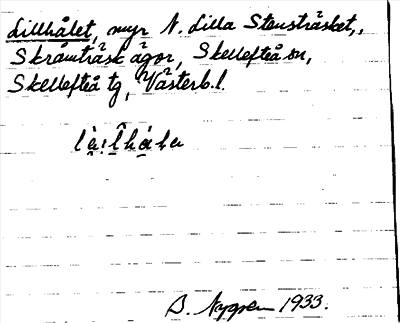 Lillhålet, myr N. Lilla Stensträsket,
Skråmträsk ägor, Skellefteå sn,
Skellefteå tg, Västerb. l.
B. Nygren 1933.